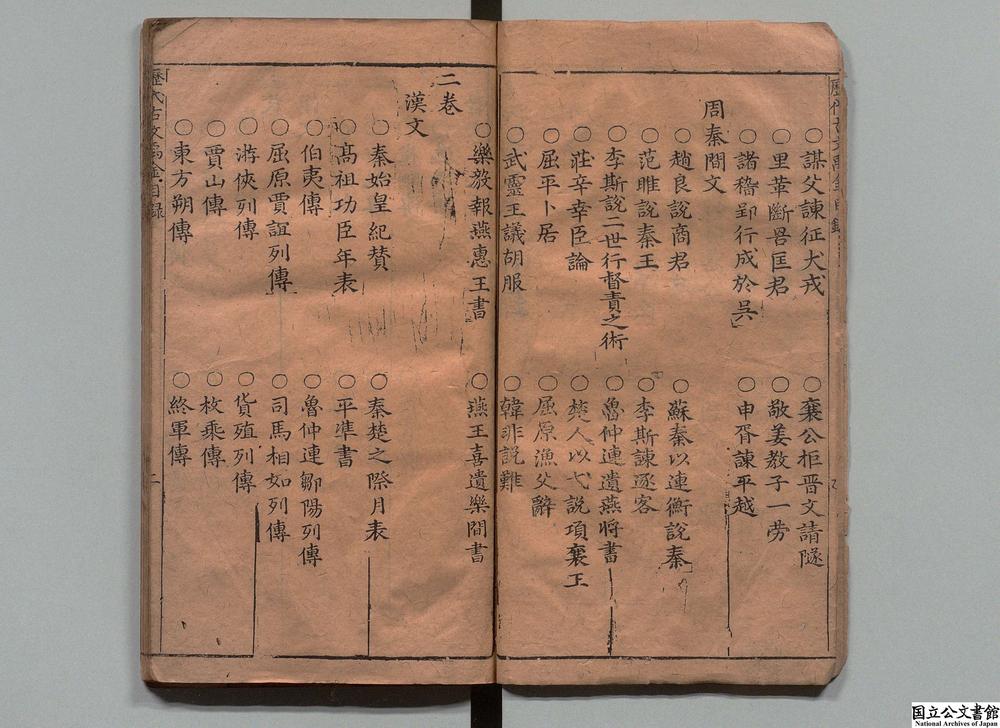 ○謀父諫征犬戎　○襄公拒晋文請隧
○里革斷罟匡君　○敬姜教子一劳
○諸稽郢行成於吳　○申胥諫平越
周秦間文
○趙良說商君　○蘇秦以連衡說秦
○范睢說秦王　○李斯諫逐客
○李斯說二世行督責之術　○魯仲連遺燕将書
○莊辛幸臣論　○楚人以弋說項襄王
○屈平卜居　○屈原漁父辭
武靈王議胡服　○韓非說難
○樂毅報燕惠王書　○燕王喜遺樂間書
二卷
漢文
○秦始皇紀賛　○秦楚之際月表
○高祖功臣年表　○平凖書
○伯夷傳　○魯仲連鄒陽列傳
○屈原賈誼列傳　○司馬相如列傳
○游俠列傳　○貨殖列傳
○賈山傳　○枚乘傳
○東方朔傳　○終軍傳
歷代古文 目録 二
国立公文書館
National Archives of Japan